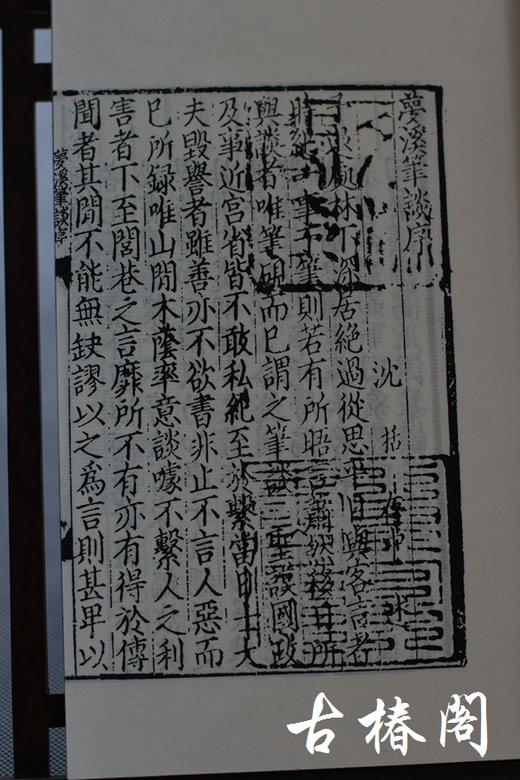 夢溪筆談序
沈括存中述
退處林下深居絕過從思平日與客言者
時紀一事于筆則若有所晤言蕭然移日所
與談者唯筆硯而已謂之筆談聖謨國政
及事近宮省皆不敢私紀至於繫當日士大
夫毀譽者雖善亦不欲書非止不言人惡而
已所録唯山閒木蔭率意談噱不繫人之利
害者下至閭巷之言靡所不有亦有得於傳
聞者其閒不能無缺謬以之爲言則甚卑以
夢溪筆談序
古椿閣